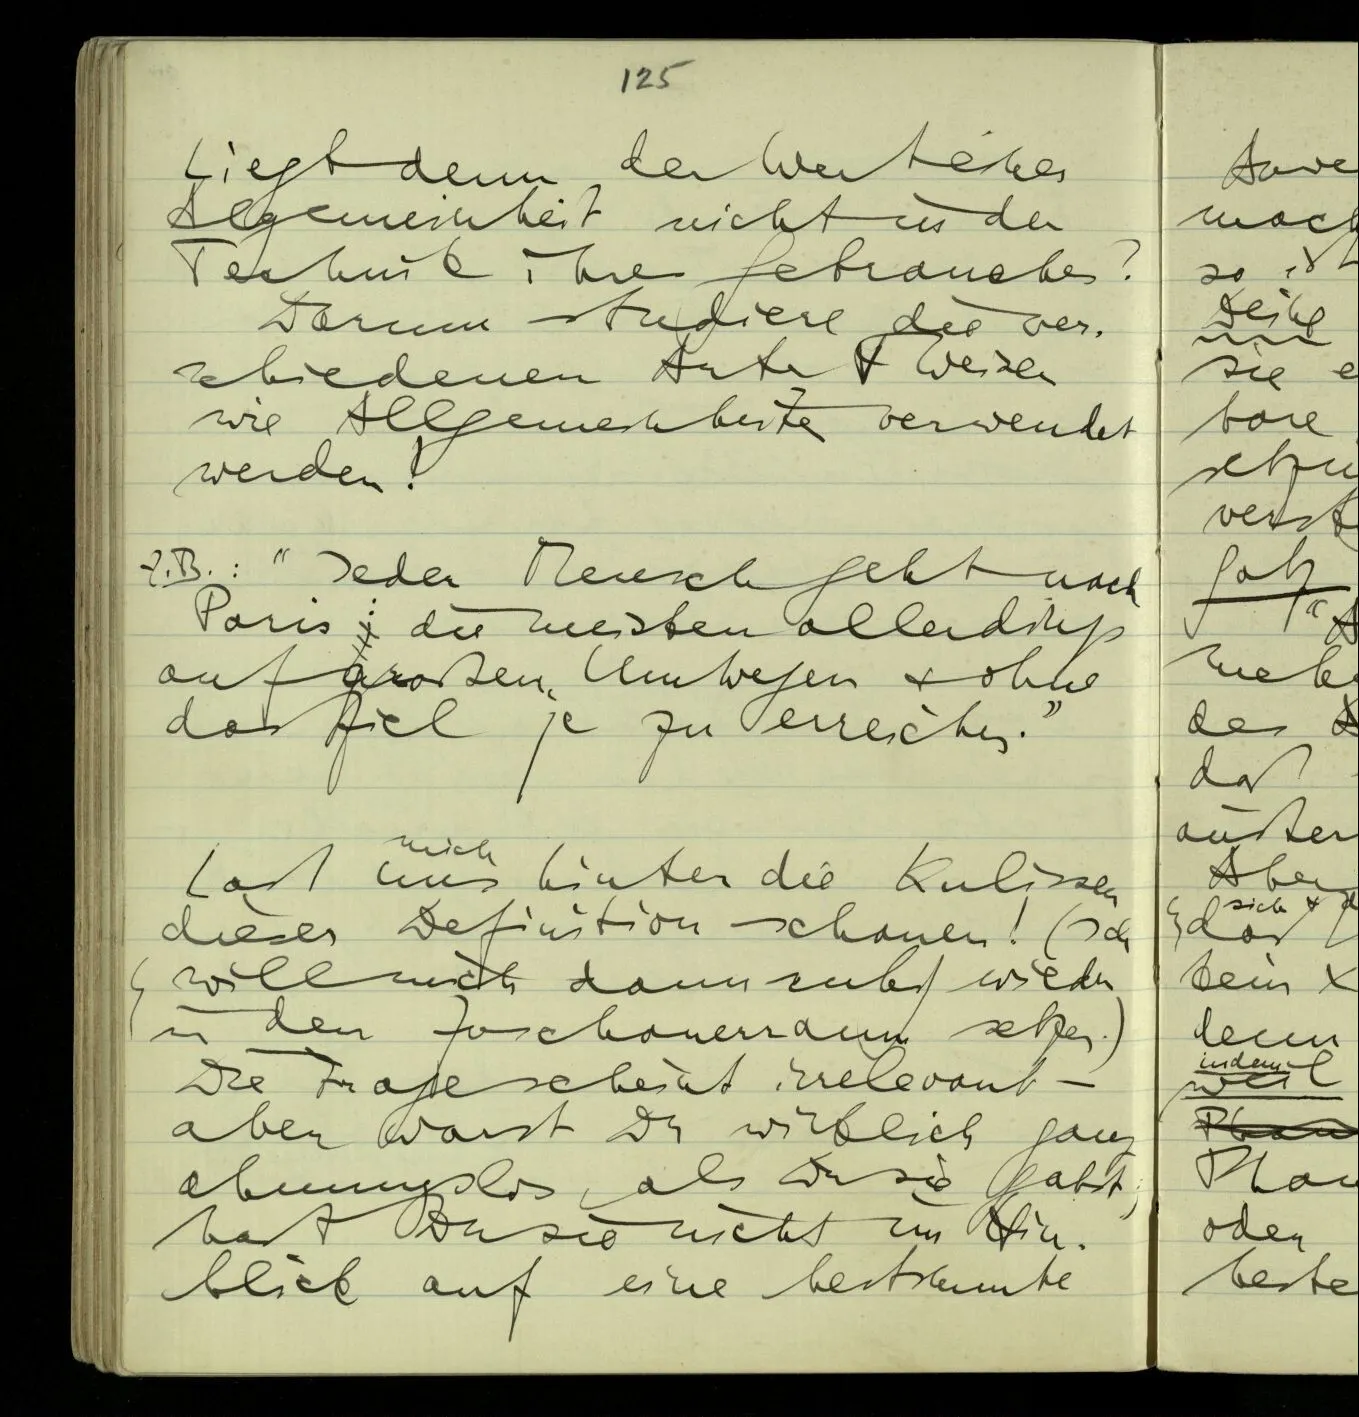 125
Liegt denn der Wert einer
Allgemeinheit nicht in der
Technik ihres Gebrauches?
Darum studiere die ver-
schiedenen Arten & Weisen
wie Allgemeinheiten verwendet
werden!
Z.B.: "Jeder Mensch geht nach
Paris; die meisten allerdings
auf großen Umwegen & ohne
das Ziel je zu erreichen."
mich
Laß uns hinter die Kulissen
dieser Definition schauen! (Ich
will mich dann ruhig wieder
in den Zuschauerraum setzen.)
Die Frage scheint irrelevant –
aber warst Du wirklich ganz
ahnungslos, als Du sie gabst;
hast Du sie nicht im Hin-
blick auf eine bestimmte
mach
so ist
Deine
sie
bare
verst
gatz
des
daß
Aber
sich &
das
kein
denn
indem
weil
oder
beste